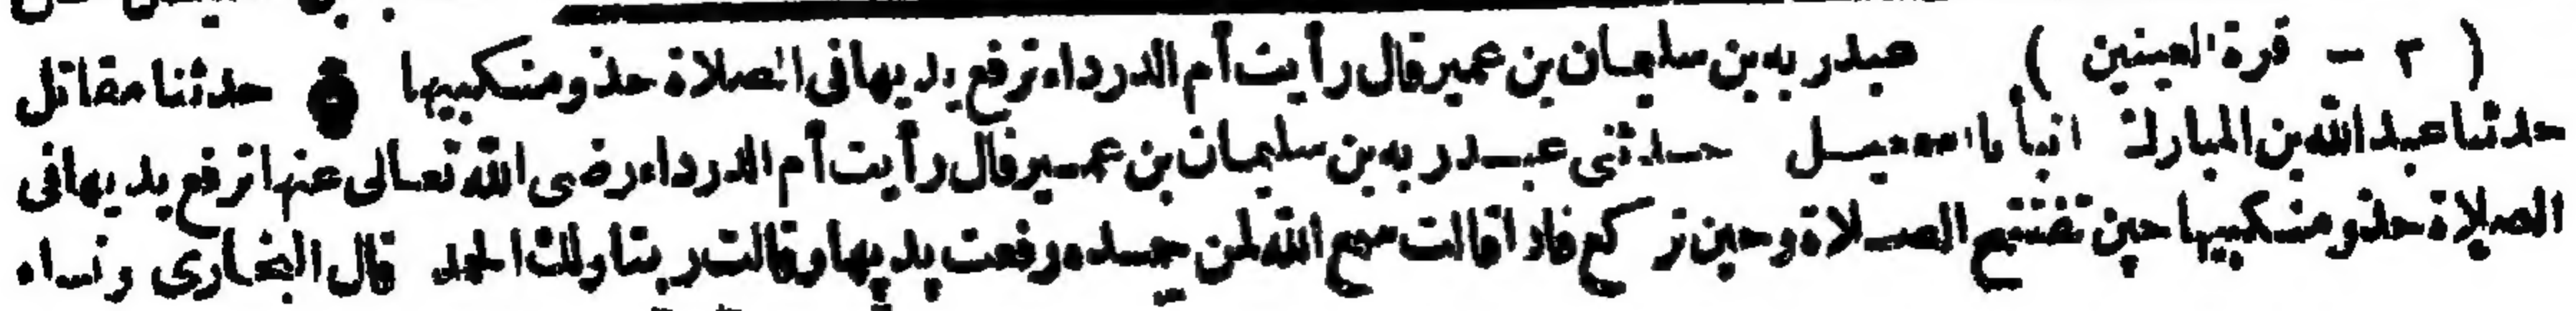 ( ٢ - قرة العينين ) عبدربه بن سليمان بن عمير قال رأيت أم الدرداء ترفع يديها في الصلاة حذو منكبيها حدثنا مقاتل
حدثنا عبد الله بن المبارك انبأنا اسمعيل حدثني عبدربه بن سليمان بن عمير قال رأيت أم الدرداء رضى الله تعالى عنها ترفع يديها في
الصلاة حذو منكبيها حين تفتتح الصلاة وحين تركع فاذا قالت سمع الله لمن حمده رفعت يديها وقالت ربنا ولك الحمد قال البخارى ونساء